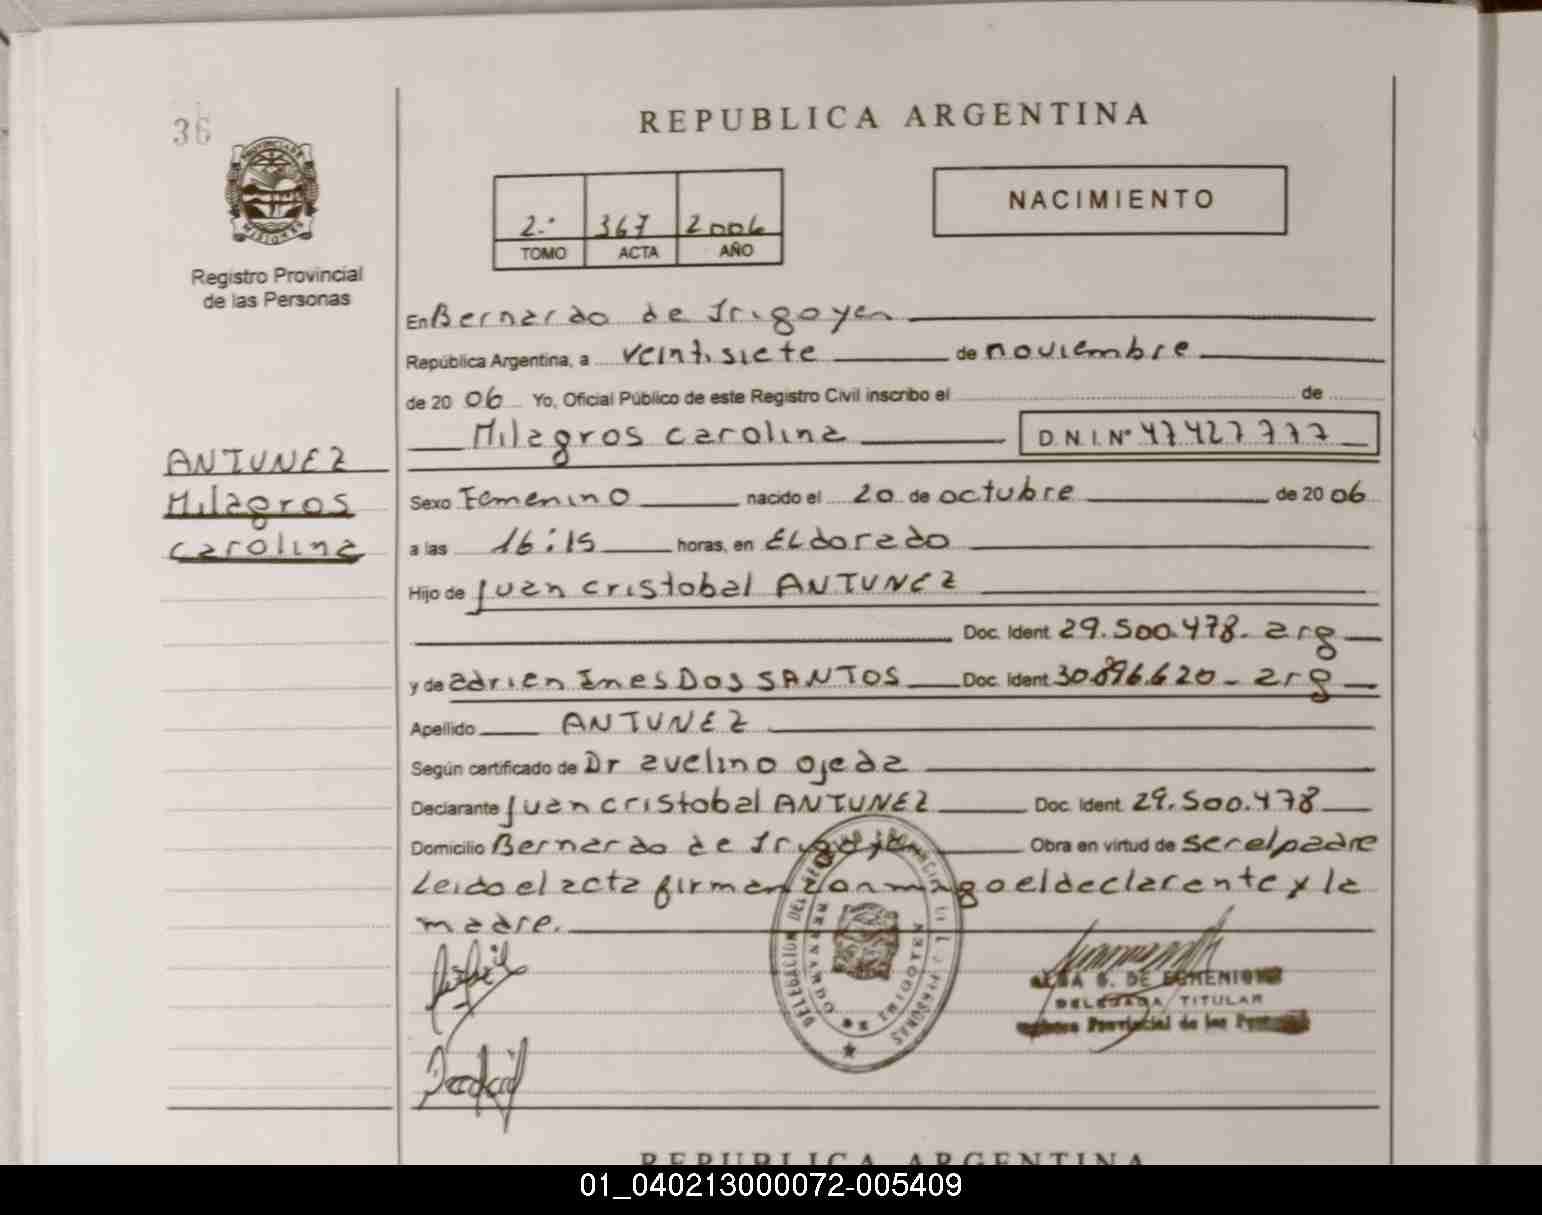 36
REPUBLICA ARGENTINA
PROVINCIA DE MISIONES
Registro Provincial
de las Personas
2.º 367 2006
TOMO ACTA AÑO
NACIMIENTO
En Bernardo de Irigoyen
República Argentina, a veintisiete de noviembre
de 2006 Yo, Oficial Público de este Registro Civil inscribo el de
Milagros carolina D.N.I.Nº 47427777
ANTUNEZ
Milagros
carolina
Sexo Femenino nacido el 20 de octubre de 2006
a las 16:15 horas, en ELdorado
Hijo de Juan cristobal ANTUNEZ
Doc. Ident. 29.500.478- arg
y de adrien Ines DOS SANTOS Doc. Ident. 30.896.620- arg
Apellido ANTUNEZ
Según certificado de Dr avelino ojeda
Declarante Juan cristobal ANTUNEZ Doc. Ident. 29.500.478
Domicilio Bernardo de Irigoyen Obra en virtud de ser el padre
Leido el acta firman conmigo el declarente y la
madre.
DELEGACION DEL REGISTRO PROVINCIAL DE LAS PERSONAS
BERNARDO DE IRIGOYEN
ALBA S. DE
DELEGADA TITULAR
Registro Provincial de las Personas
REPUBLICA ARGENTINA
01_040213000072-005409